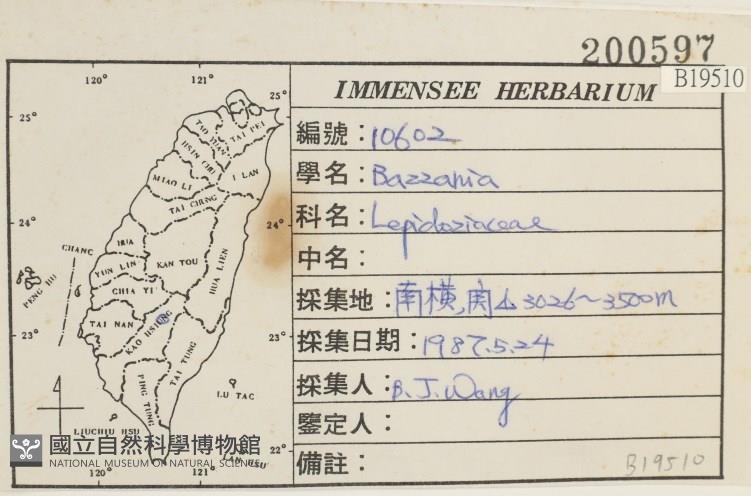 200597
B19510
IMMENSEE HERBARIUM
編號：10602
學名：Bazzania
科名：Lepidoziaceae
中名：
採集地：南橫,関山3026~3500m
採集日期：1987.5.24
採集人：B.J.Wang
鑒定人：
備註：
B19510
120° 121°
25° 25°
TAO YUAN TAI PEI
HSIN CHU
I LAN
MIAO LI
TAI CHUNG
24° 24°
CHANG HUA
PENG HU
YUN LIN KAN TOU HUA LIEN
CHIA YI
TAI NAN
23° 23°
KAO HSIUNG
TAI TUNG
PING TUNG
LU TAO
LIUCHIU HSU
LAN HSU
22° 22°
120° 121°
國立自然科學博物館
NATIONAL MUSEUM OF NATURAL SCIENCE